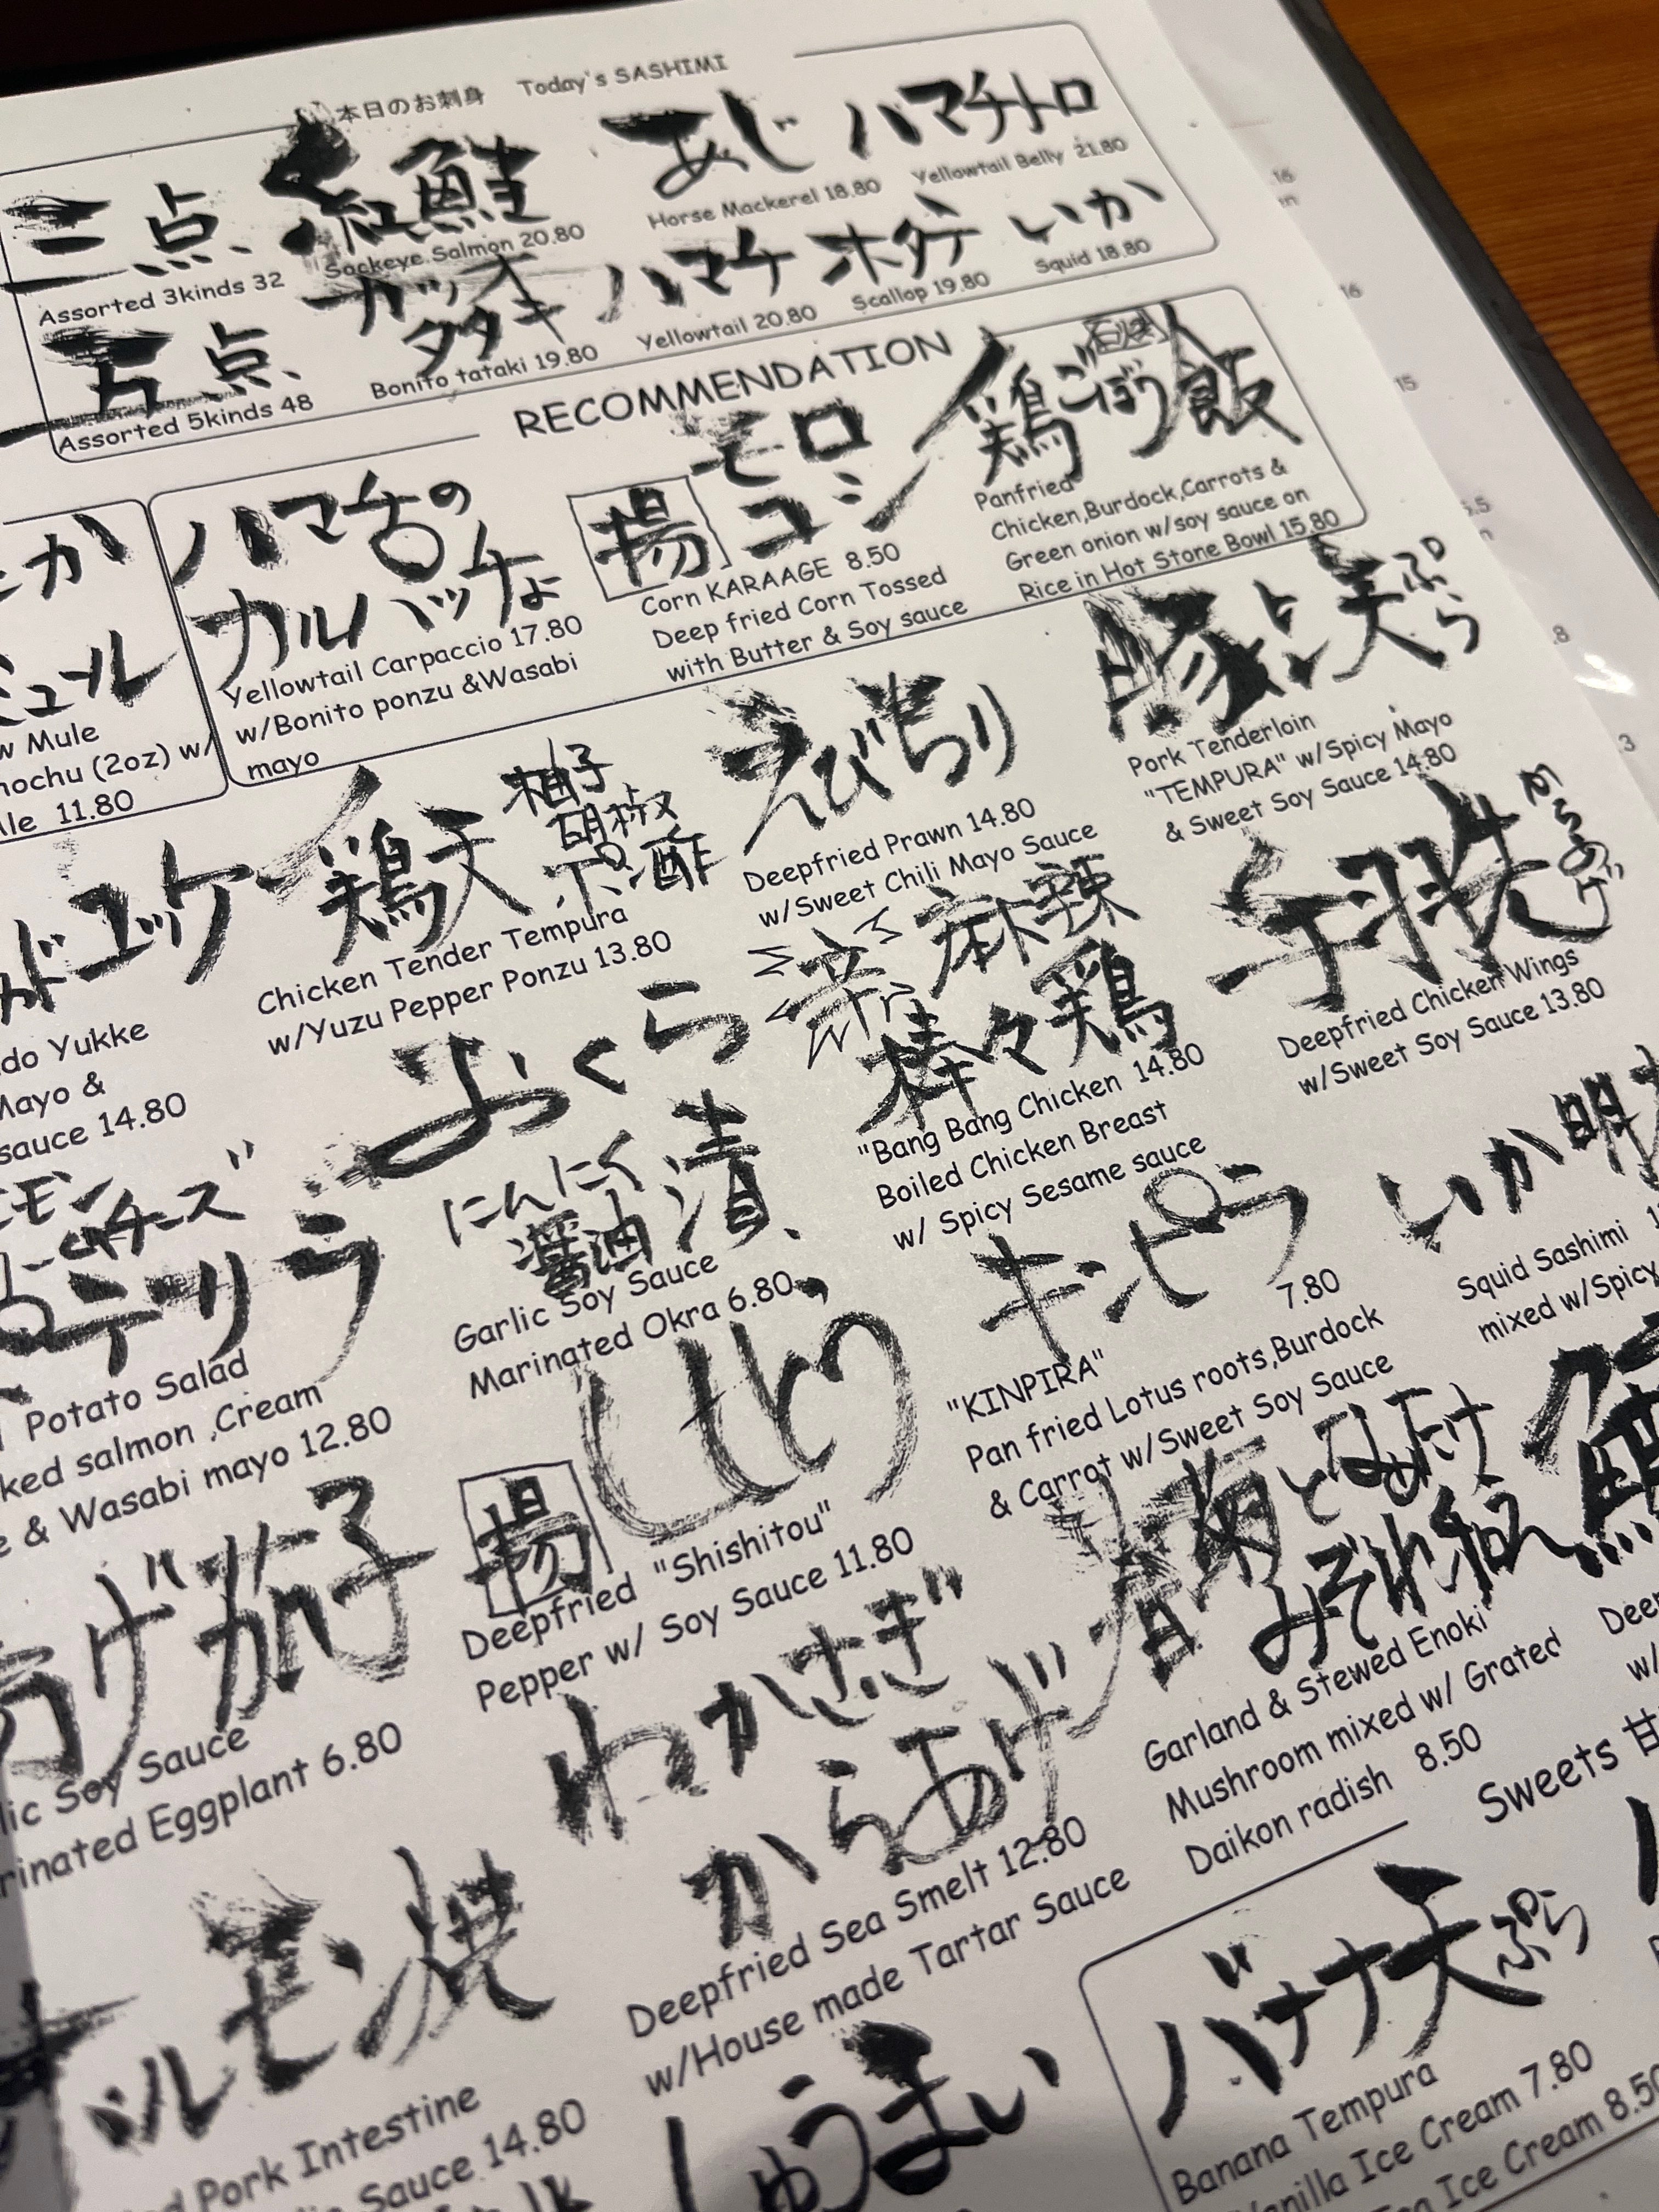 本日のお刺身 Today's SASHIMI
三点
Assorted 3kinds 32
紅鮭
Sockeye Salmon 20.80
あじ
Horse Mackerel 18.80
ハマチトロ
Yellowtail Belly 21.80
五点
Assorted 5kinds 48
カツオ
タタキ
Bonito tataki 19.80
ハマチ
Yellowtail 20.80
ホタテ
Scallop 19.80
いか
Squid 18.80
RECOMMENDATION
ミュール
Mule
(2oz) w/
11.80
ハマチの
カルパッチョ
Yellowtail Carpaccio 17.80
w/Bonito ponzu &Wasabi
mayo
揚
モロ
コシ
Corn KARAAGE 8.50
Deep fried Corn Tossed
with Butter & Soy sauce
石焼
鶏ごぼう飯
Panfried
Chicken,Burdock,Carrots &
Green onion w/soy sauce on
Rice in Hot Stone Bowl 15.80
ユッケ
Yukke
Mayo &
sauce 14.80
鶏天
柚子
胡椒
ポン酢
Chicken Tender Tempura
w/Yuzu Pepper Ponzu 13.80
えびちり
Deepfried Prawn 14.80
w/Sweet Chili Mayo Sauce
豚天ぷら
Pork Tenderloin
"TEMPURA" w/Spicy Mayo
& Sweet Soy Sauce 14.80
チーズ
ポテサラ
Potato Salad
salmon ,Cream
& Wasabi mayo 12.80
おくら
にんにく
醤油
漬
Garlic Soy Sauce
Marinated Okra 6.80
辛
麻辣
棒々鶏
"Bang Bang Chicken 14.80
Boiled Chicken Breast
w/ Spicy Sesame sauce
手羽先
からあげ
Deepfried Chicken Wings
w/Sweet Soy Sauce 13.80
げ茄子
Soy Sauce
Eggplant 6.80
揚
しし
Deepfried "Shishitou"
Pepper w/ Soy Sauce 11.80
キンピラ
7.80
"KINPIRA"
Pan fried Lotus roots,Burdock
& Carrot w/Sweet Soy Sauce
いか明
Squid Sashimi
mixed w/Spicy
ルモン焼
Pork Intestine
Sauce 14.80
わかさぎ
からあげ
Deepfried Sea Smelt 12.80
w/House made Tartar Sauce
春菊となめたけ
みぞれ和え
Garland & Stewed Enoki
Mushroom mixed w/ Grated
Daikon radish 8.50
w/
しゅうまい
Sweets 甘
バナナ天ぷら
Banana Tempura
Vanilla Ice Cream 7.80
Ice Cream 8.50